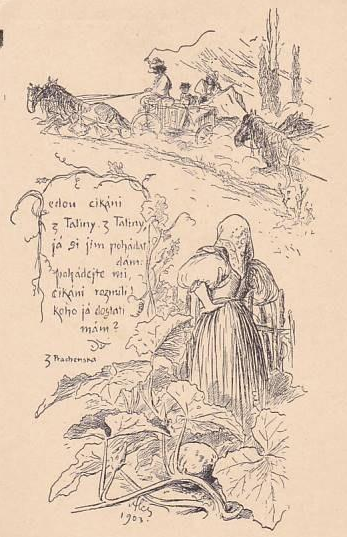 Jedou cikáni
z Tatiny, z Tatiny,
já si jim pohádat
dám:
pohádejte mi,
cikáni rozmilí!
koho já dostati
mám?
Z Prachenska
1903.